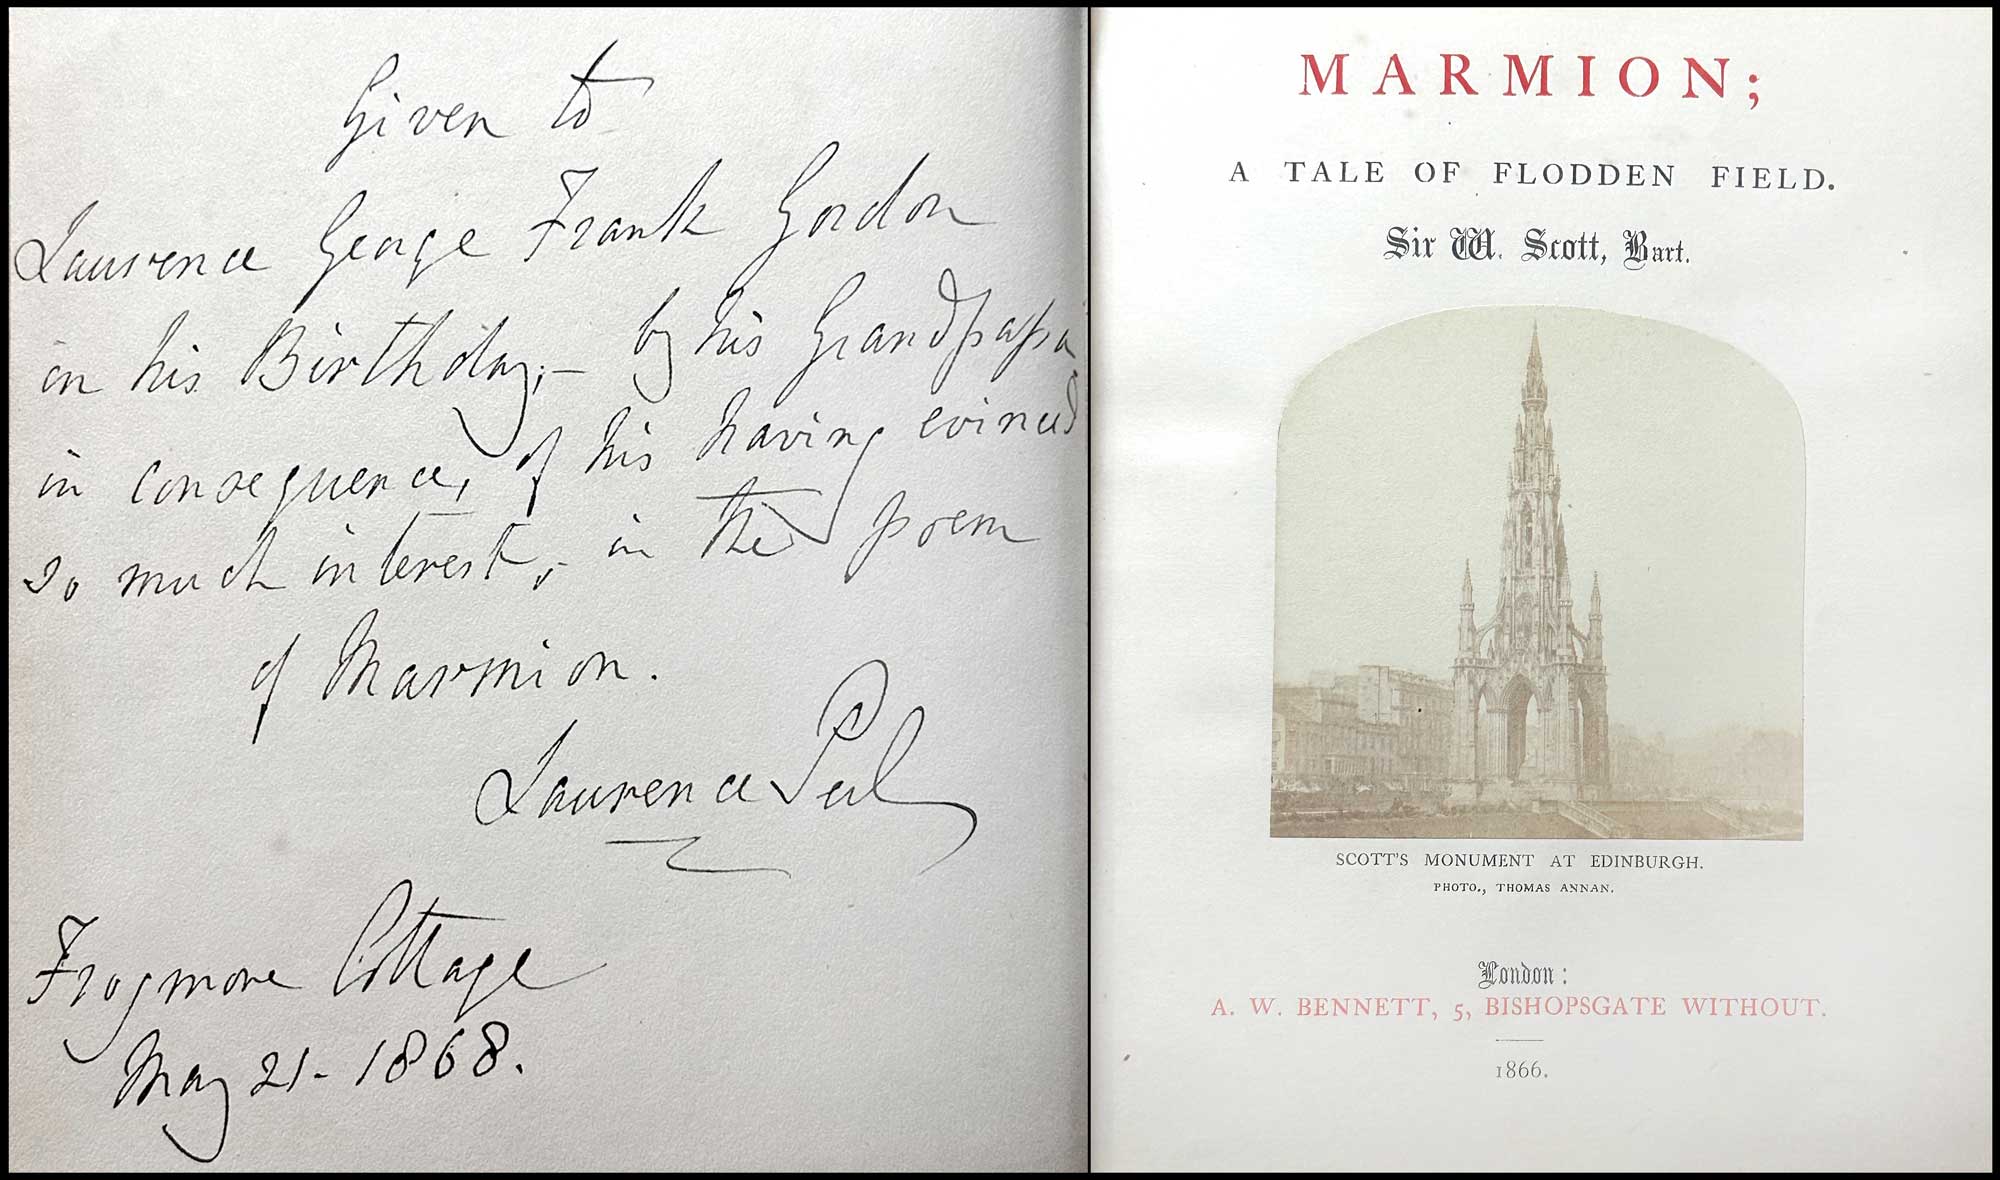 Given to
Laurence George Frank Gordon
on his Birthday;– by his Grandpapa
in consequence, of his having evinced
so much interest,– in the poem
of Marmion.
Laurence Peel
Frogmore Cottage
May 21– 1868.
MARMION;
A TALE OF FLODDEN FIELD.
Sir W. Scott, Bart.
SCOTT'S MONUMENT AT EDINBURGH.
PHOTO., THOMAS ANNAN.
London:
A. W. BENNETT, 5, BISHOPSGATE WITHOUT.
1866.